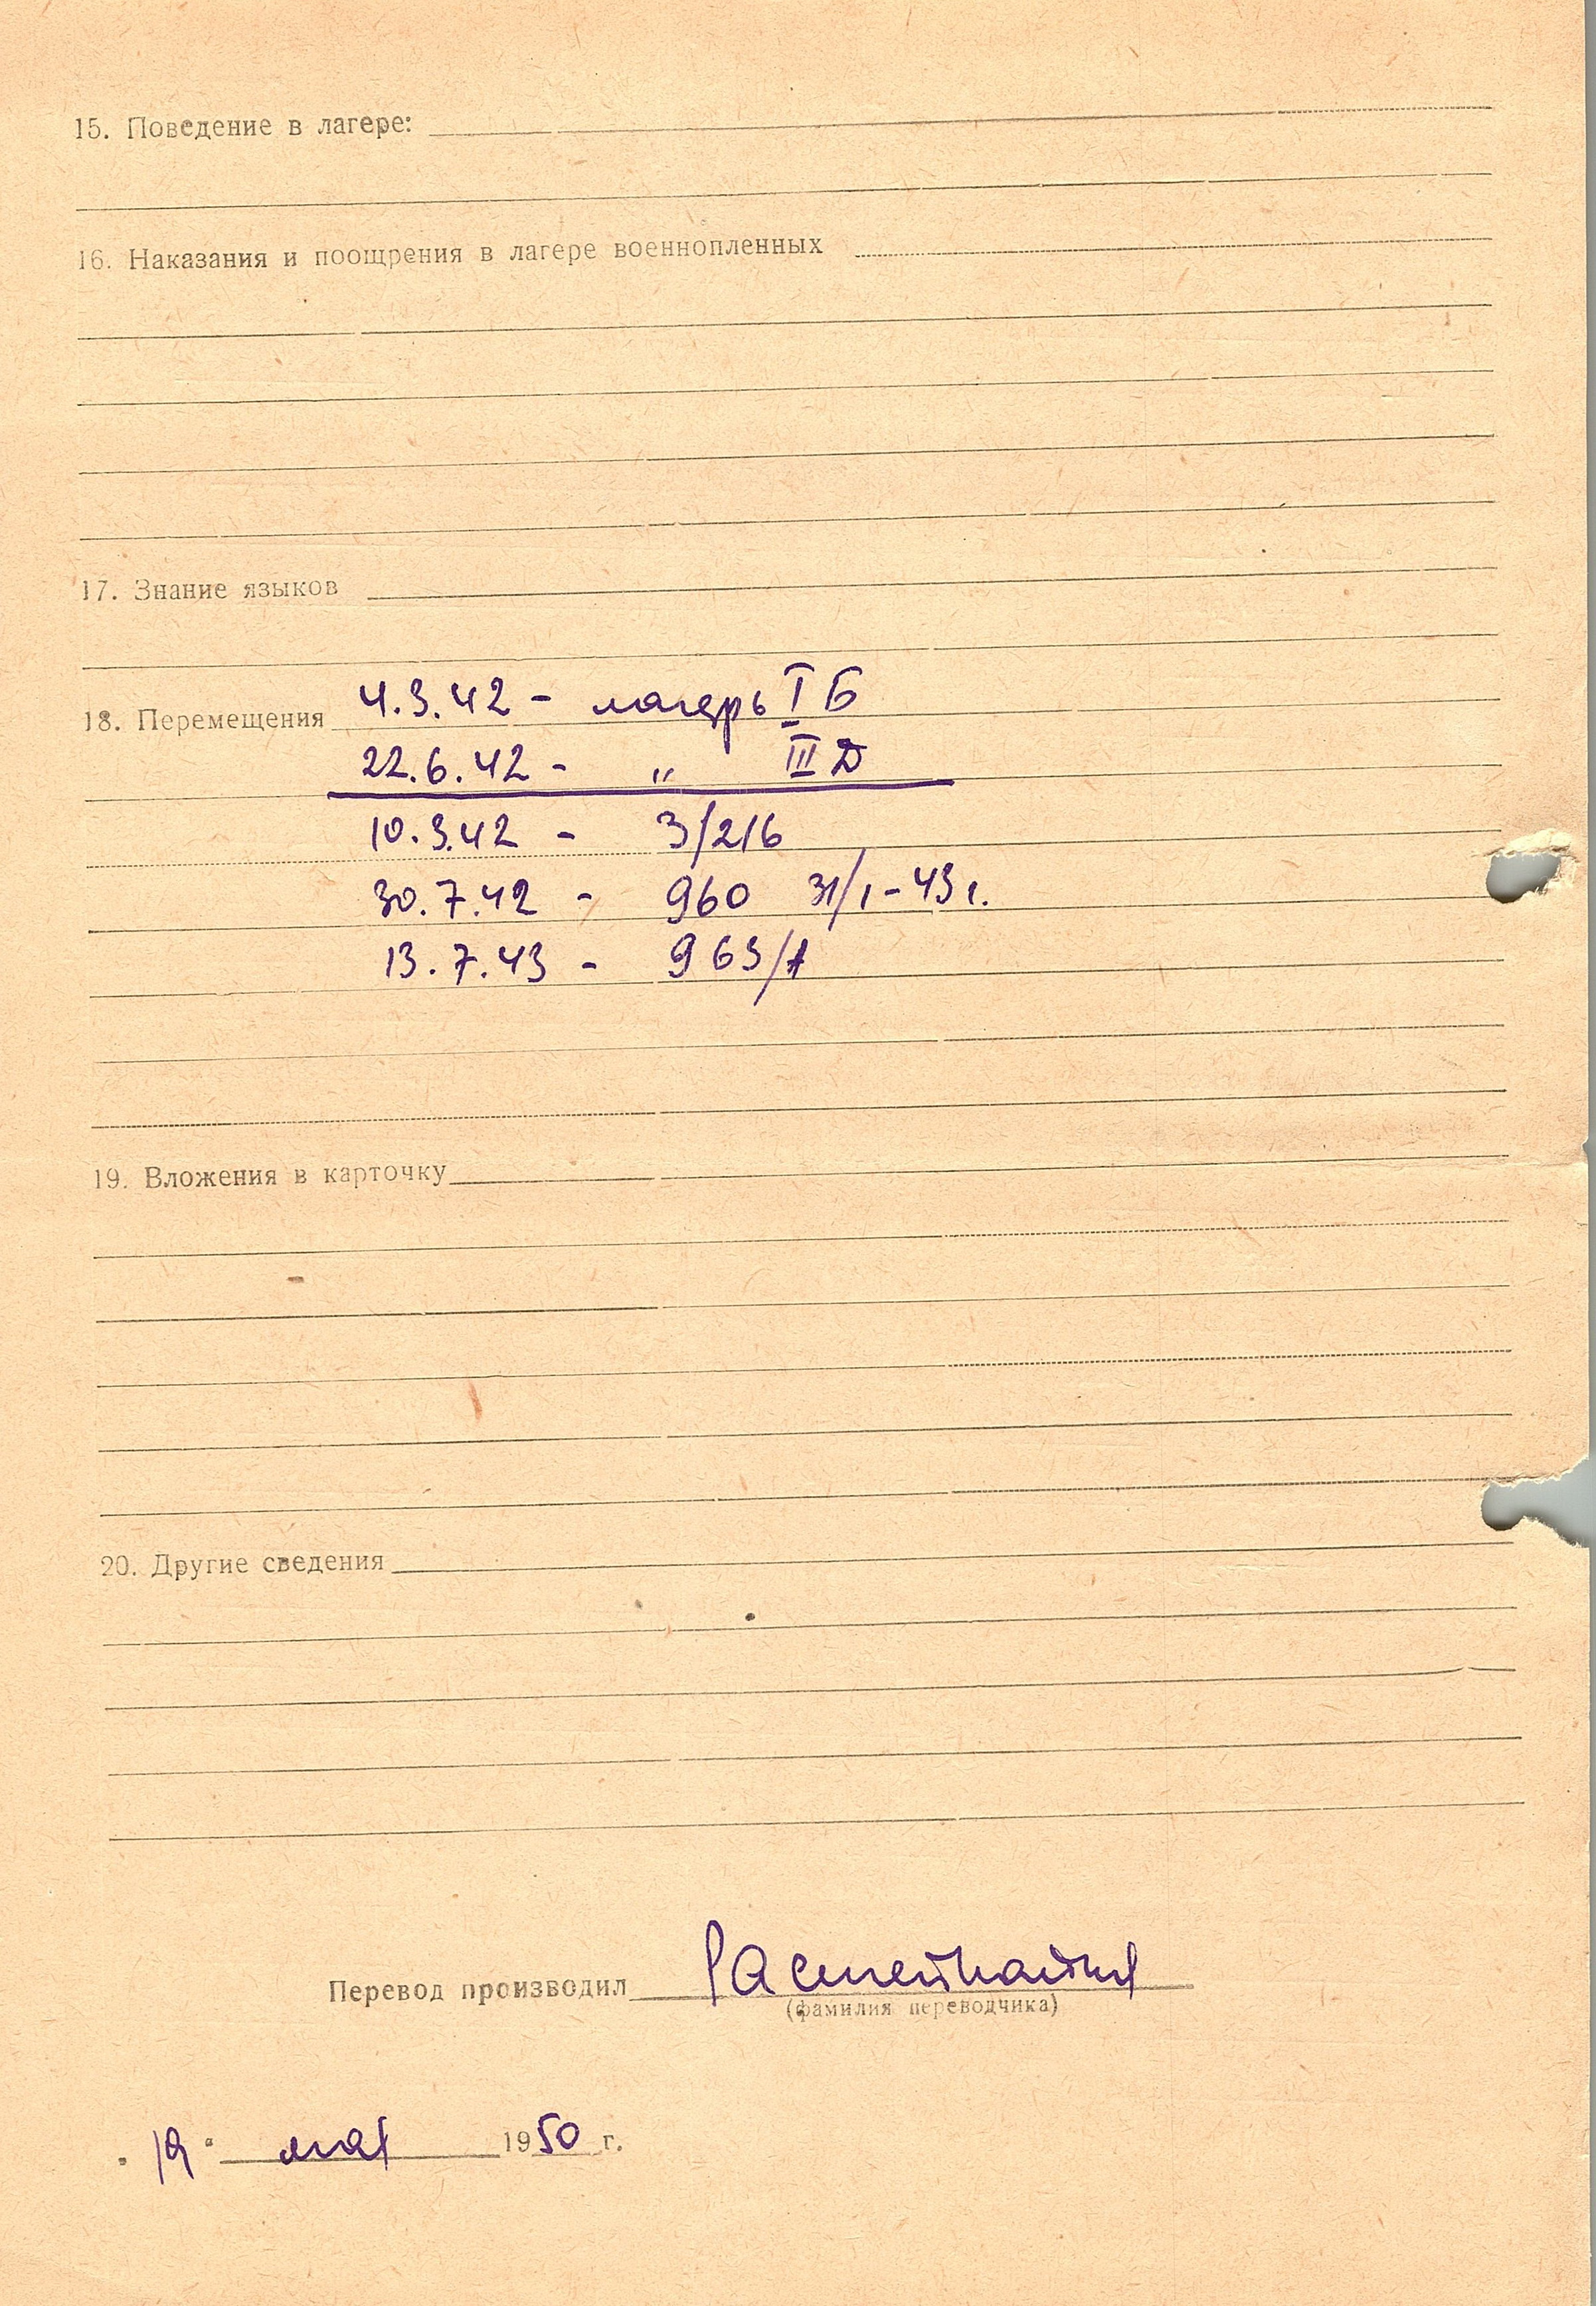 15. Поведение в лагере:
16. Наказания и поощрения в лагере военнопленных
17. Знание языков
4.3.42 - лагерь I Б
18. Перемещения
22.6.42 - " III Д
10.3.42 - 3/216
30.7.42 - 960 31/1-43 г.
13.7.43 - 963/1
19. Вложения в карточку
20. Другие сведения
Перевод производил
(фамилия переводчика)
19" мая 1950 г.